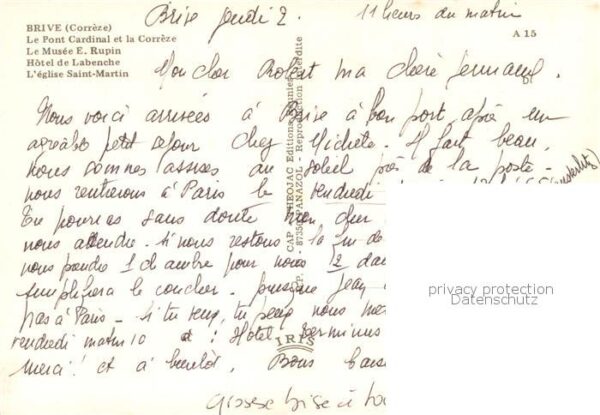 BRIVE (Corrèze)
Le Pont Cardinal et la Corrèze
Le Musée E. Rupin
Hôtel de Labenche
L'église Saint-Martin
A 15
Brive jeudi 2. 11 heures du matin
Mon cher Robert ma chère Germaine.
Nous voici arrivées à Brive à bon port après un
agréable petit séjour chez Michèle. Il fait beau,
nous sommes assises au soleil près de la poste -
nous rentrerons à Paris le vendredi
Tu pourras sans doute bien
nous attendre. si nous restons la fin de
nous prendre 1 chambre pour nous 2
simplifiera le coucher - puisque Jean
pas à Paris - si tu veux, tu peux nous
vendredi matin 10 Hôtel Terminus
merci! et à bientôt. Bons
Grosse bise à
CAP THEOJAC Editions
87350 PANAZOL - Reproduction interdite
IRIS
privacy protection
Datenschutz